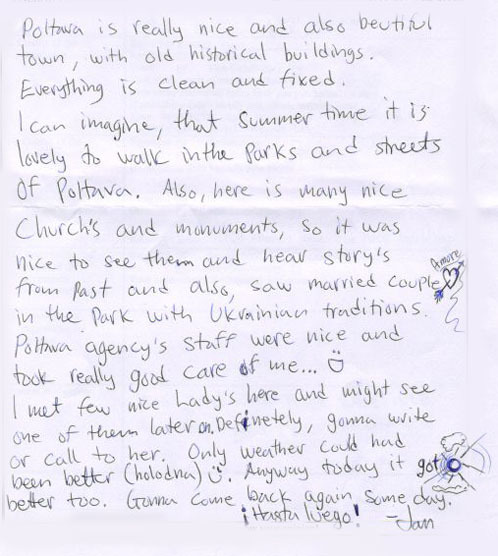 Poltava is really nice and also beutiful
town, with old historical buildings.
Everything is clean and fixed.
I can imagine, that Summer time it is
lovely to walk in the Parks and streets
Of Poltava. Also, here is many nice
Church's and monuments, so it was
nice to see them and hear story's
from Past and also, saw married couple
Amore
in the Park with Ukrainian traditions.
Poltava agency's staff were nice and
took really good care of me...
I met few nice Lady's here and might see
one of them later on. Definetely, gonna write
or call to her. Only weather could had
been better (holodna) :). Anyway today it got
better too. Gonna come back again, some day.
¡Hasta luego! -Jan